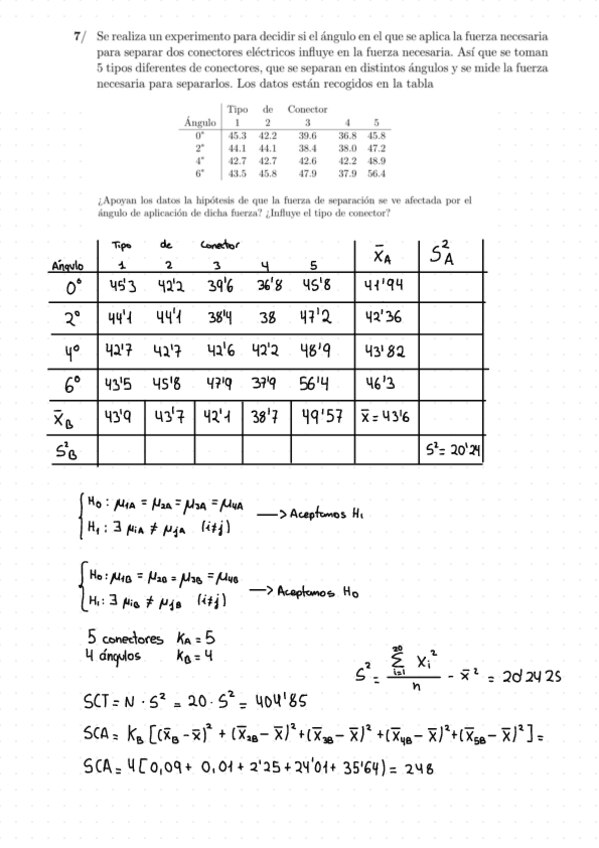 7/ Se realiza un experimento para decidir si el ángulo en el que se aplica la fuerza necesaria
para separar dos conectores eléctricos influye en la fuerza necesaria. Así que se toman
5 tipos diferentes de conectores, que se separan en distintos ángulos y se mide la fuerza
necesaria para separarlos. Los datos están recogidos en la tabla
Tipo de Conector
Ángulo 1 2 3 4 5
0° 45.3 42.2 39.6 36.8 45.8
2° 44.1 44.1 38.4 38.0 47.2
4° 42.7 42.7 42.6 42.2 48.9
6° 43.5 45.8 47.9 37.9 56.4
¿Apoyan los datos la hipótesis de que la fuerza de separación se ve afectada por el
ángulo de aplicación de dicha fuerza? ¿Influye el tipo de conector?
Tipo de Conector
Ángulo 1 2 3 4 5 X̄_A S²_A
0° 45'3 42'2 39'6 36'8 45'8 41'94
2° 44'1 44'1 38'4 38 47'2 42'36
4° 42'7 42'7 42'6 42'2 48'9 43'82
6° 43'5 45'8 47'9 37'9 56'4 46'3
X̄_B 43'9 43'7 42'1 38'7 49'57 x̄ = 43'6
S²_B S² = 20'24
H₀: μ₁A = μ₂A = μ₃A = μ₄A —> Aceptamos H₁
H₁: ∃ μiA ≠ μjA (i≠j)
H₀: μ₁B = μ₂B = μ₃B = μ₄B —> Aceptamos H₀
H₁: ∃ μiB ≠ μjB (i≠j)
5 conectores K_A = 5
4 ángulos K_B = 4
S² = (20 Σ i=1 Xi²)/n - x̄² = 20'2425
SCT = N · S² = 20 · S² = 404'85
SCA = K_B [(x̄_B - x̄)² + (x̄₂B - x̄)² + (x̄₃B - x̄)² + (x̄₄B - x̄)² + (x̄₅B - x̄)²] =
SCA = 4 [0,09 + 0,01 + 2'25 + 24'01 + 35'64) = 248